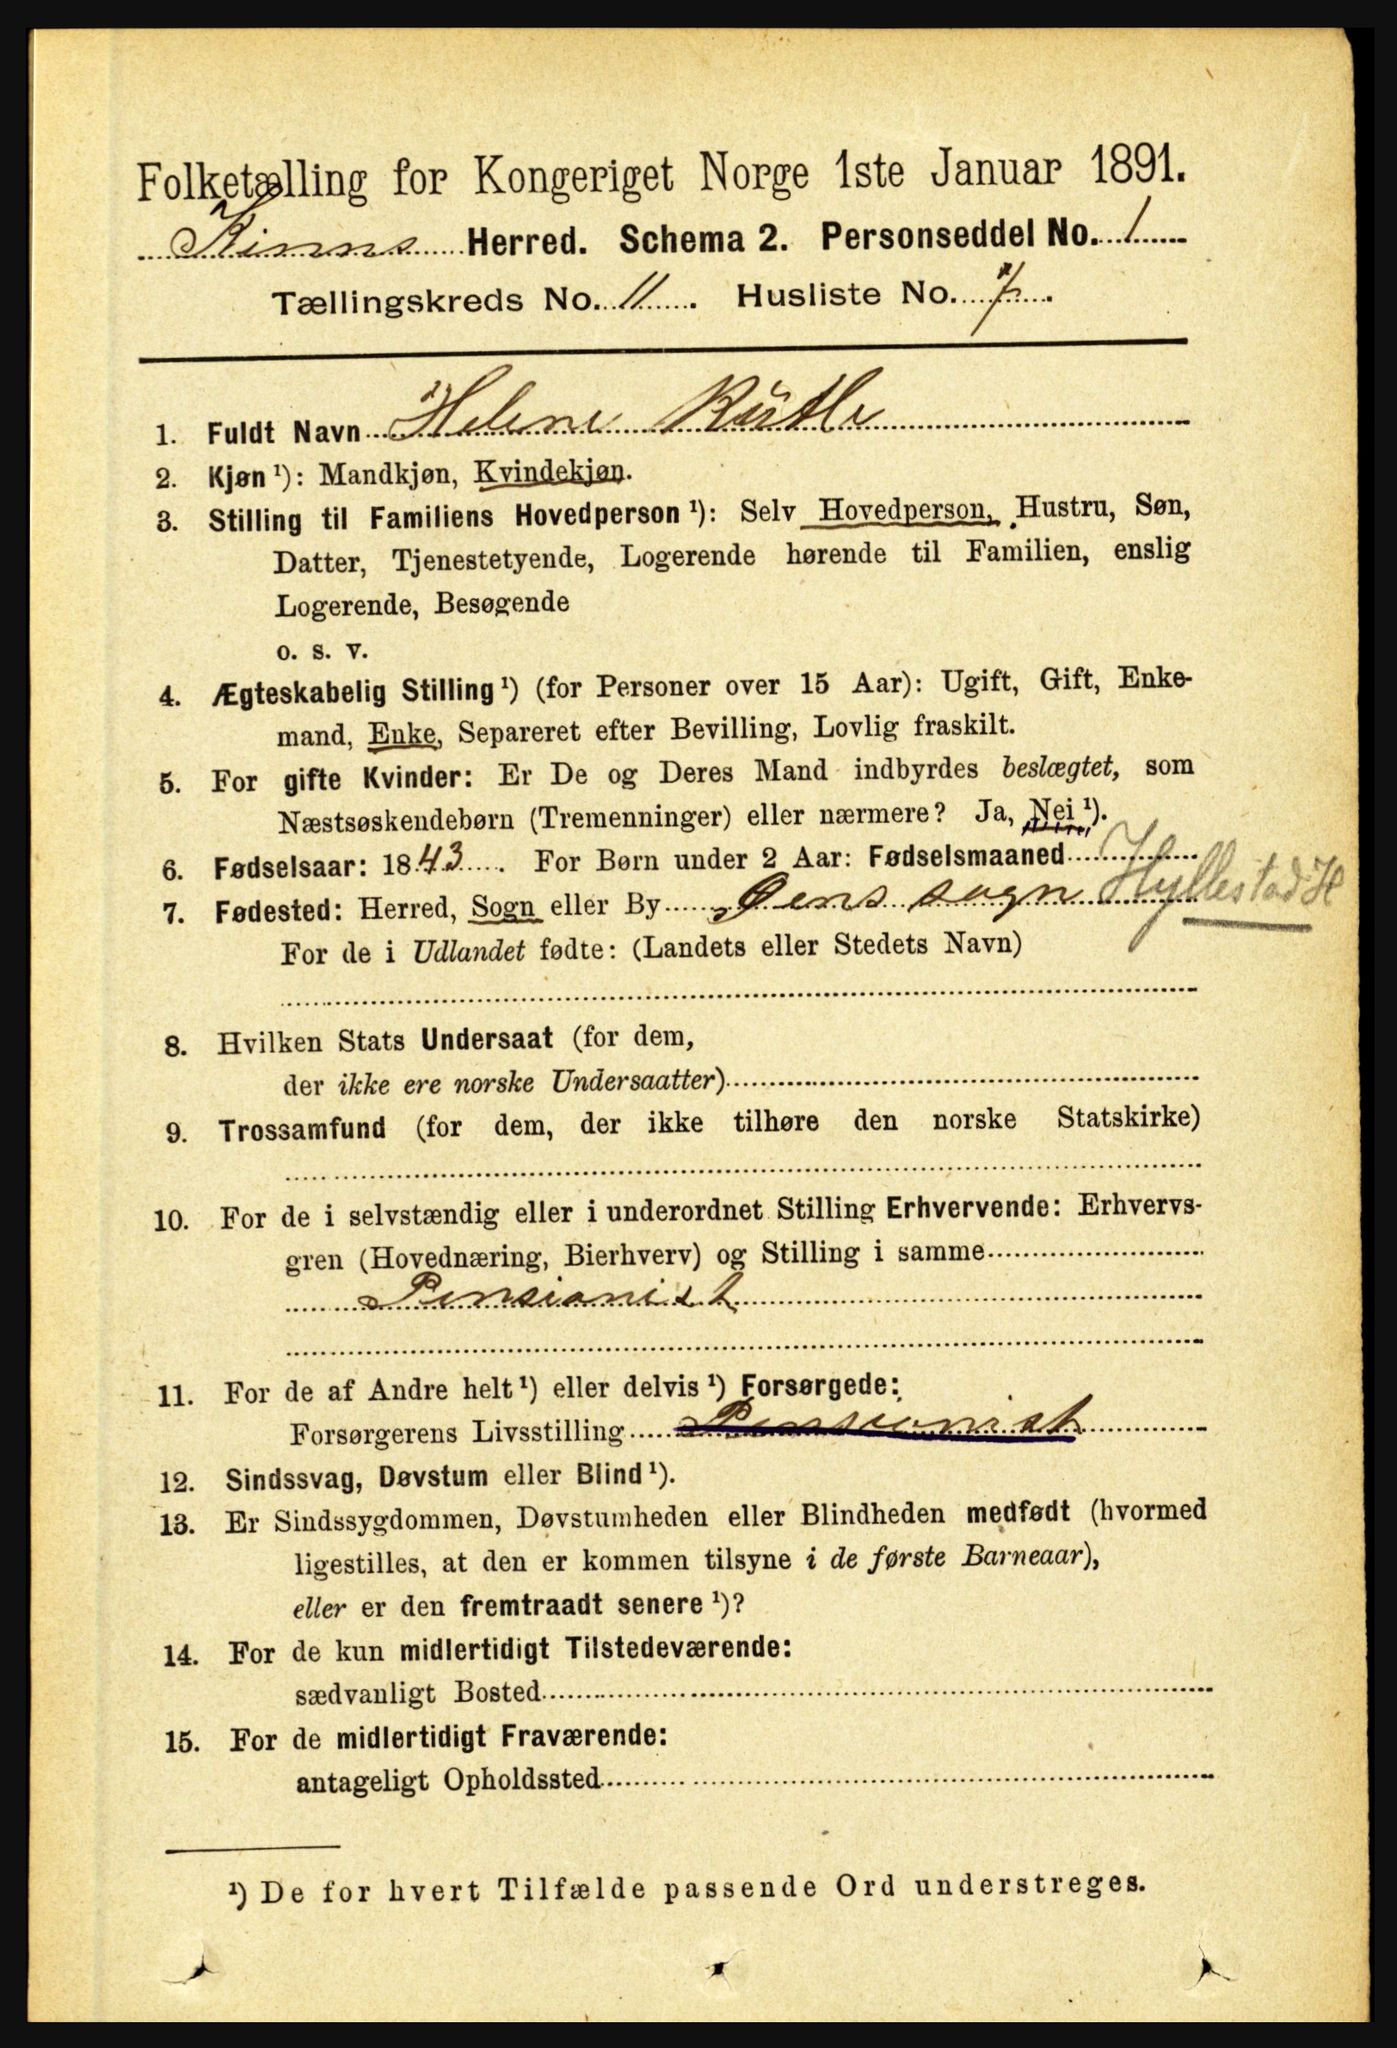 Folketælling for Kongeriget Norge 1ste Januar 1891.
Kinns Herred. Schema 2. Personseddel No. 1
Tællingskreds No. 11. Husliste No. 7.
1. Fuldt Navn Helene
2. Kjøn ¹): Mandkjøn, Kvindekjøn.
3. Stilling til Familiens Hovedperson ¹): Selv Hovedperson, Hustru, Søn,
Datter, Tjenestetyende, Logerende hørende til Familien, enslig
Logerende, Besøgende
o. s. v.
4. Ægteskabelig Stilling ¹) (for Personer over 15 Aar): Ugift, Gift, Enke-
mand, Enke, Separeret efter Bevilling, Lovlig fraskilt.
5. For gifte Kvinder: Er De og Deres Mand indbyrdes beslægtet, som
Næstsøskendebørn (Tremenninger) eller nærmere? Ja, Nei ¹).
6. Fødselsaar: 1843. For Børn under 2 Aar: Fødselsmaaned
7. Fødested: Herred, Sogn eller By Øens sogn Hyllestad H
For de i Udlandet fødte: (Landets eller Stedets Navn)
8. Hvilken Stats Undersaat (for dem,
der ikke ere norske Undersaatter)
9. Trossamfund (for dem, der ikke tilhøre den norske Statskirke)
10. For de i selvstændig eller i underordnet Stilling Erhvervende: Erhvervs-
gren (Hovednæring, Bierhverv) og Stilling i samme
Pensionist
11. For de af Andre helt ¹) eller delvis ¹) Forsørgede:
Forsørgerens Livsstilling Pensionist
12. Sindssvag, Døvstum eller Blind ¹).
13. Er Sindssygdommen, Døvstumheden eller Blindheden medfødt (hvormed
ligestilles, at den er kommen tilsyne i de første Barneaar),
eller er den fremtraadt senere ¹)?
14. For de kun midlertidigt Tilstedeværende:
sædvanligt Bosted
15. For de midlertidigt Fraværende:
antageligt Opholdssted
¹) De for hvert Tilfælde passende Ord understreges.